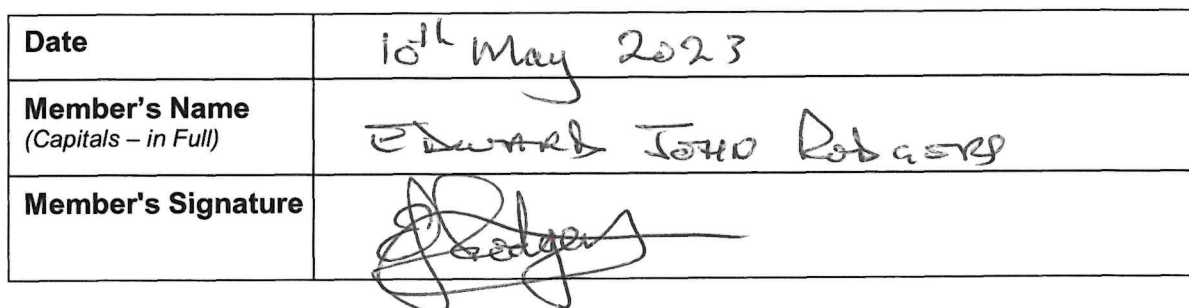 Date 10th May 2023
Member's Name
(Capitals – in Full) EDWARD JOHN RODGERS
Member's Signature EJRodgers